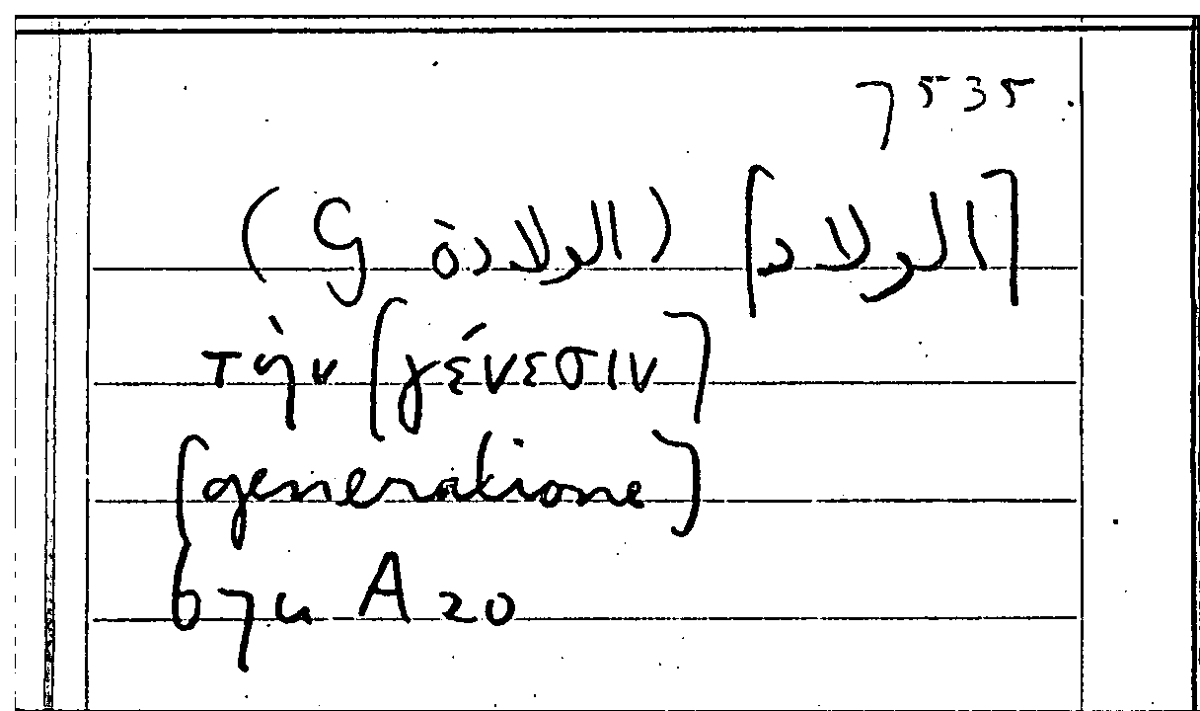 7535
[الولاد] (الولادة G)
τὴν [γένεσιν]
[generatione]
671a A 20